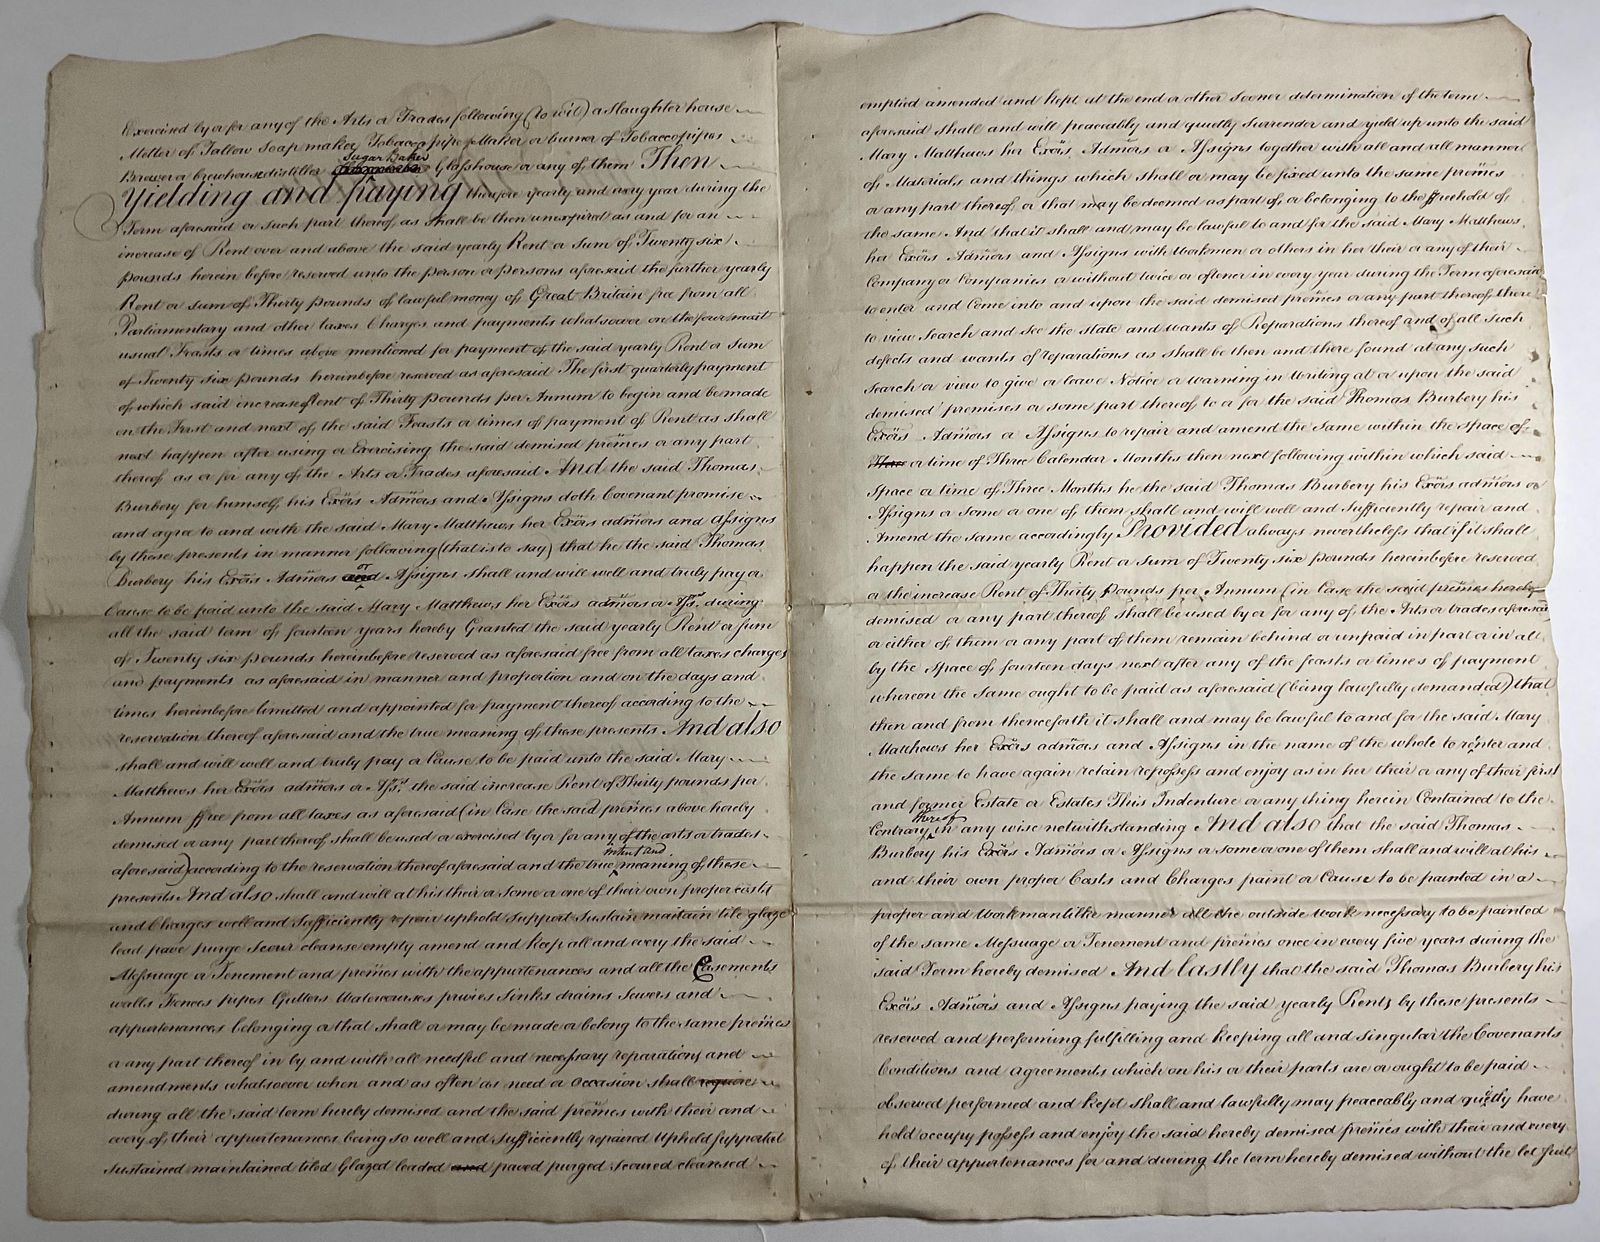 Exercised by or for any of the Arts or Trades following (to wit) a Slaughter house
Melter of Tallow Soap maker Tobacco pipe Maker or burner of Tobacco pipes
Sugar Baker
Brewer or brewhouse distiller Glasshouse or any of them Then
Yielding and paying therefore yearly and every year during the
Term aforesaid or such part thereof as shall be then unexpired as and for an
increase of Rent over and above the said yearly Rent or sum of Twenty six
pounds herein before reserved unto the person or persons aforesaid the further yearly
Rent or sum of Thirty pounds of lawful money of Great Britain free from all
Parliamentary and other taxes Charges and payments whatsoever on the four most
usual Feasts or times above mentioned for payment of the said yearly Rent or sum
of Twenty six pounds hereinbefore reserved as aforesaid The first quarterly payment
of which said increase Rent of Thirty pounds per Annum to begin and be made
on the First and next of the said Feasts or times of payment of Rent as shall
next happen after using or Exercising the said demised premes or any part
thereof as or for any of the Arts or Trades aforesaid And the said Thomas
Burbery for himself his Exors Admors and Assigns doth Covenant promise
and agree to and with the said Mary Matthews her Exors admors and assigns
by these presents in manner following (that is to say) that he the said Thomas
or
Burbery his Exors Admors and Assigns shall and will well and truly pay or
Cause to be paid unto the said Mary Matthews her Exors admors or Asss. during
all the said term of fourteen years hereby Granted the said yearly Rent or sum
of Twenty six pounds hereinbefore reserved as aforesaid free from all taxes charges
and payments as aforesaid in manner and proportion and on the days and
times hereinbefore limitted and appointed for payment thereof according to the
reservation thereof aforesaid and the true meaning of these presents And also
shall and will well and truly pay or Cause to be paid unto the said Mary
Matthews her Exors admors or Asss. the said increase Rent of Thirty pounds per
Annum ffree from all taxes as aforesaid (in Case the said premes above hereby
demised or any part thereof shall be used or exercised by or for any of the arts or trades
intent and
aforesaid) according to the reservation thereof aforesaid and the true meaning of these
presents And also shall and will at his their or some or one of their own proper costs
and Charges well and Sufficiently repair uphold Support Sustain maitain tile glaze
lead pave purge Scour cleanse empty amend and keep all and every the said
Messuage or Tenement and premes with the appurtenances and all the Easements
walls Fences pipes Gutters Watercourses privies Sinks drains Sewers and
appurtenances belonging or that shall or may be made or belong to the same premes
or any part thereof in by and with all needful and necessary reparations and
amendments whatsoever when and as often as need or Occasion shall require
during all the said term hereby demised and the said premes with their and
every of their appurtenances being so well and sufficiently repaired Upheld supported
sustained maintained tiled Glazed leaded and paved purged scoured cleansed
emptied amended and kept at the end or other sooner determination of the term
aforesaid shall and will peaceably and quietly Surrender and yield up unto the said
Mary Matthews her Exors Admors or Assigns together with all and all manner
of Materials and things which shall or may be fixed unto the same premes
or any part thereof or that may be deemed as part of or belonging to the ffreehold of
the same And that it shall and may be lawful to and for the said Mary Matthews
her Exors Admors and Assigns with Workmen or others in her their or any of their
Company or Companies or without twice or oftener in every year during the Term aforesaid
to enter and Come into and upon the said demised premes or any part thereof there
to view Search and see the state and wants of Reparations thereof and of all such
defects and wants of reparations as shall be then and there found at any such
Search or view to give or leave Notice or warning in Writing at or upon the said
demised premises or some part thereof to or for the said Thomas Burbery his
Exors Admors or Assigns to repair and amend the same within the space of
Three or time of Three Calendar Months then next following within which said
Space or time of Three Months he the said Thomas Burbery his Exors admors or
Assigns or some or one of them shall and will well and Sufficiently repair and
Amend the same accordingly Provided always nevertheless that if it shall
happen the said yearly Rent or sum of Twenty six pounds hereinbefore reserved
or the increase Rent of Thirty Pounds per Annum (in Case the said premes hereby
demised or any part thereof shall be used by or for any of the Arts or trades aforesaid
or either of them or any part of them remain behind or unpaid in part or in all
by the Space of fourteen days next after any of the feasts or times of payment
whereon the same ought to be paid as aforesaid (being lawfully demanded) that
then and from thenceforth it shall and may be lawful to and for the said Mary
Matthews her Exors admors and Assigns in the name of the whole to renter and
the same to have again retain repossess and enjoy as in her their or any of their first
and former Estate or Estates This Indenture or any thing herein Contained to the
thereof
Contrary in any wise notwithstanding And also that the said Thomas
Burbery his Exors Admors or Assigns or some or one of them shall and will at his
and their own proper Costs and Charges paint or Cause to be painted in a
proper and Workmanlike manner all the outside work necessary to be painted
of the same Messuage or Tenement and premes once in every five years during the
said Term hereby demised And lastly that the said Thomas Burbery his
Exors Admors and Assigns paying the said yearly Rents by these presents
reserved and performing fulfilling and keeping all and singular the Covenants
Conditions and agreements which on his or their parts are or ought to be paid
observed performed and kept shall and lawfully may peaceably and quietly have
hold occupy possess and enjoy the said hereby demised premes with their and every
of their appurtenances for and during the term hereby demised without the let suit